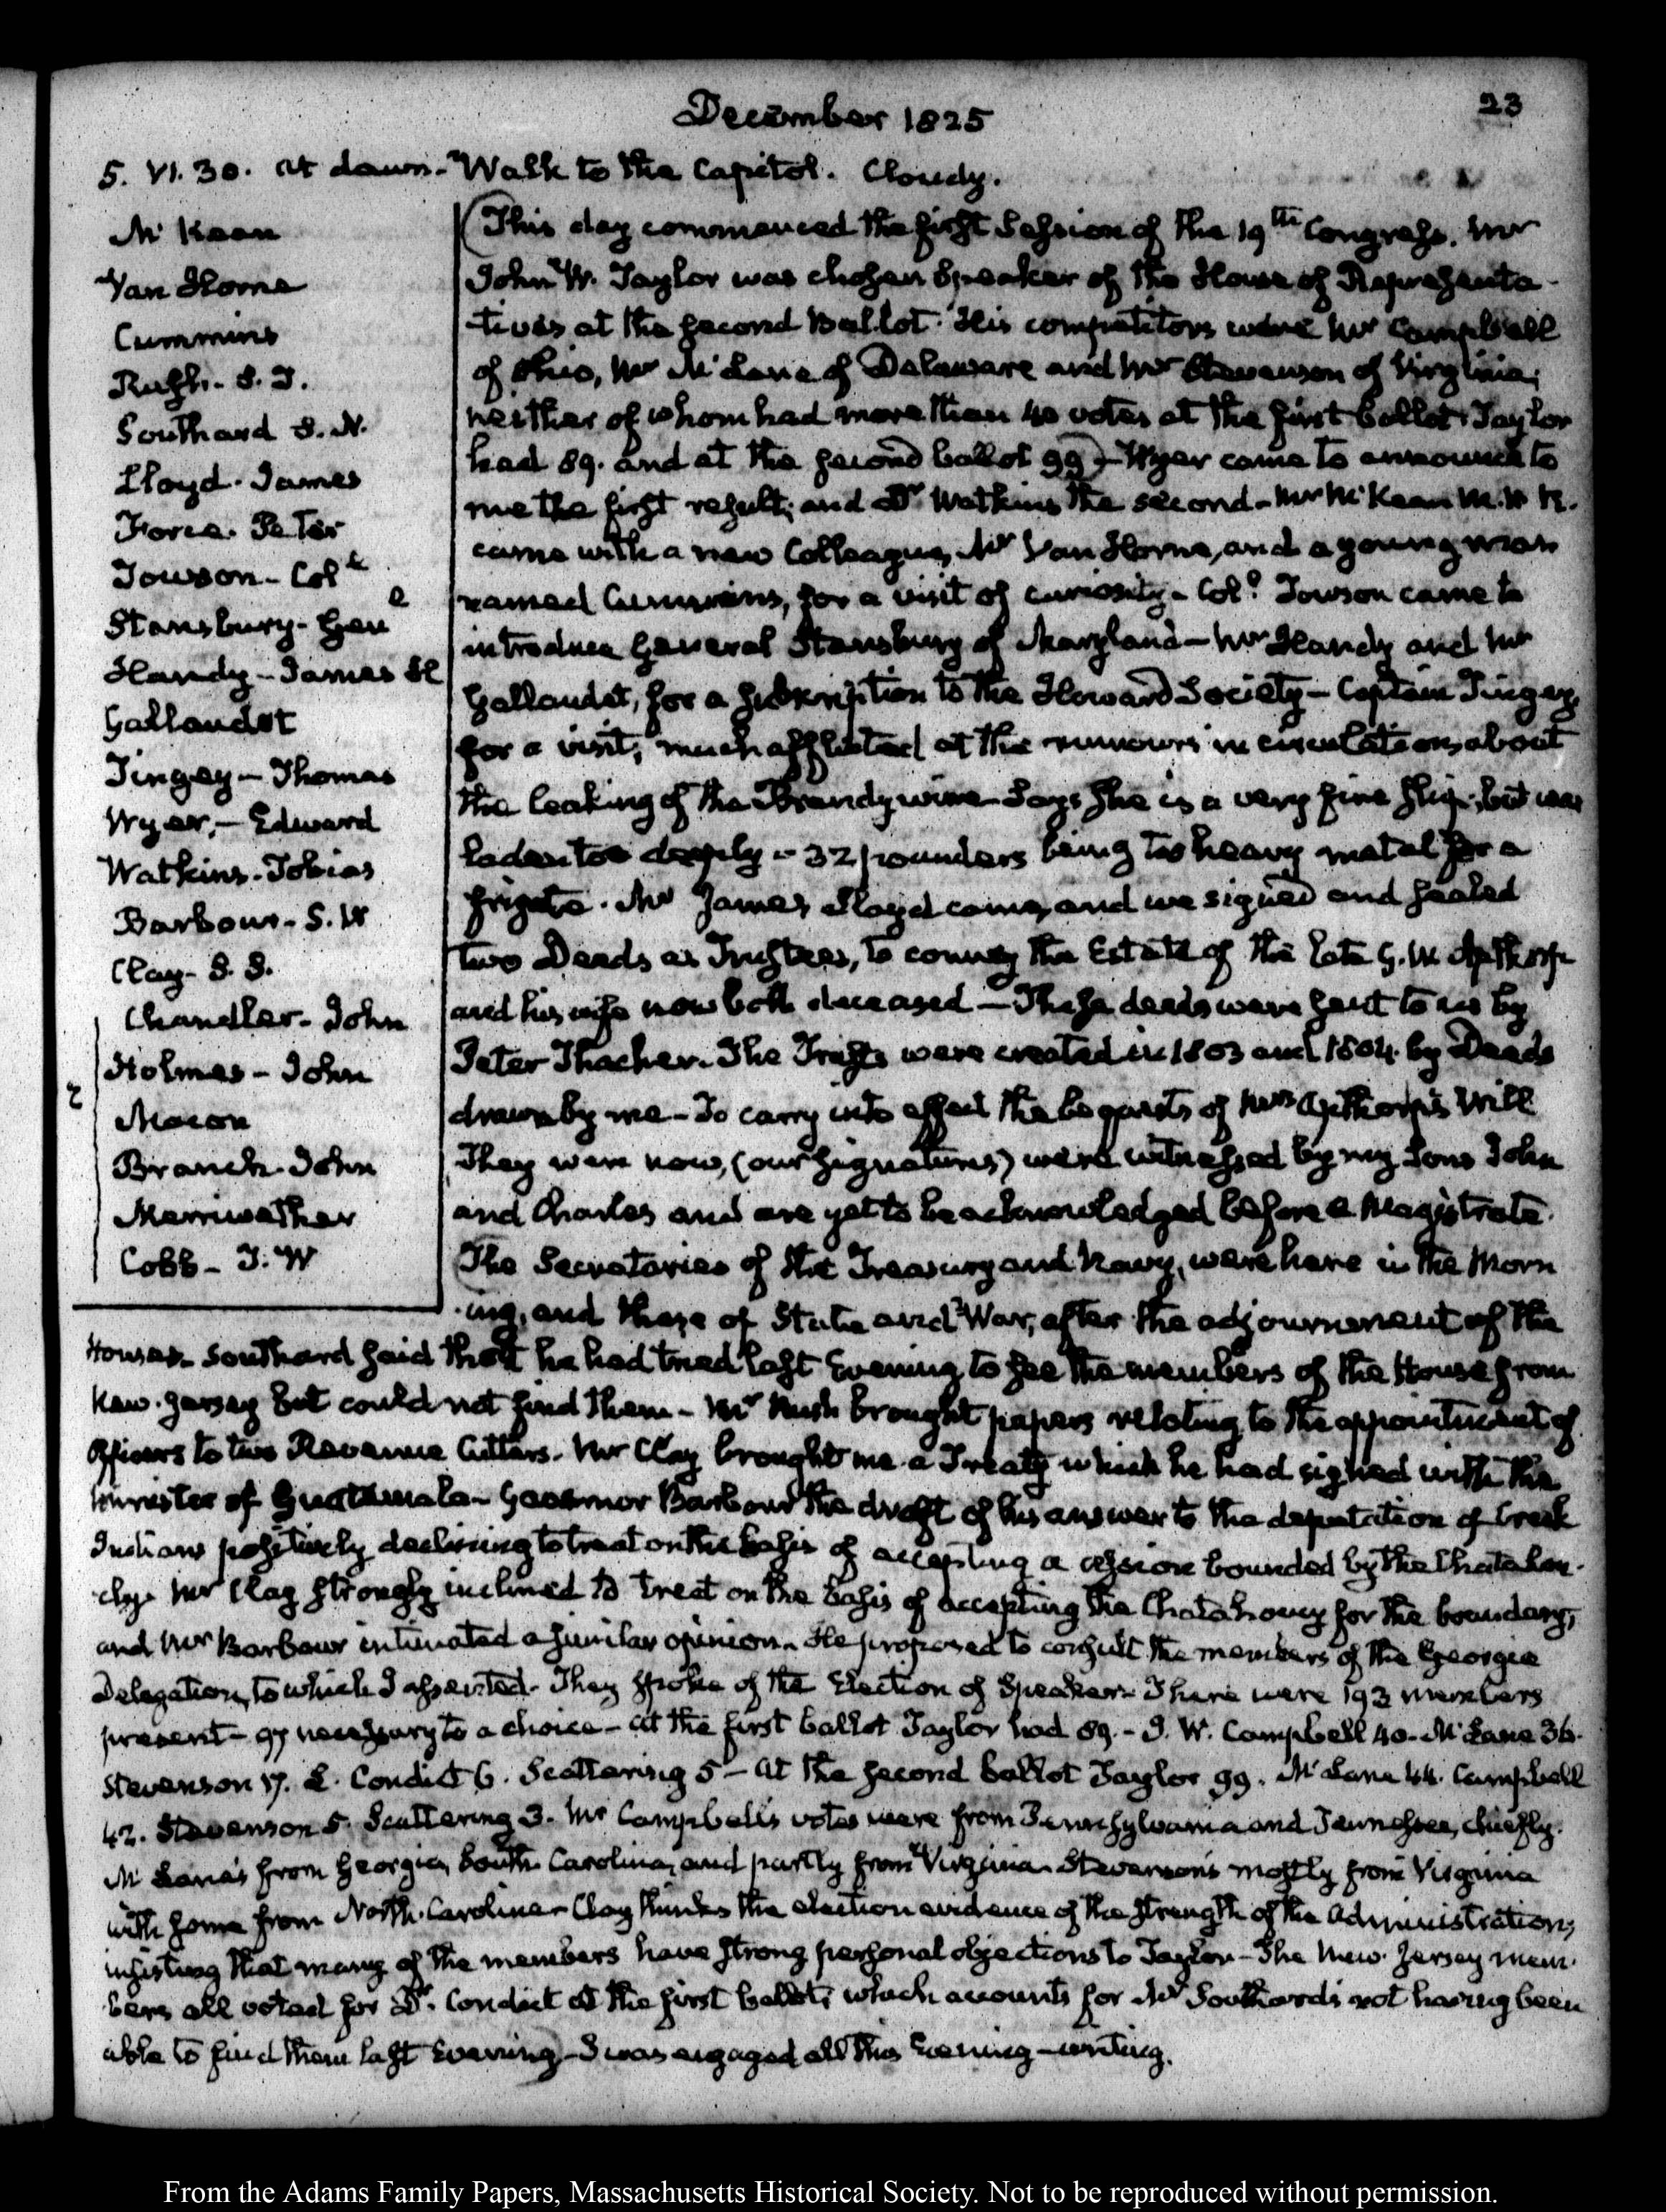 December 1825
23
5. VI. 30. at dawn. Walk to the Capitol. Cloudy.
Mc Kean
Van Horne
Cummins
Rush. S. T.
Southard S. N.
Lloyd. James
Force. Peter
Towson- Colo
Stansbury- Gen
Handy- James H
Gallaudet
Tingey- Thomas
Wyer,- Edward
Watkins. Tobias
Barbour- S. W
Clay- S. S.
Chandler- John
Holmes- John
Macon
Branch. John
Merriwether
Cobb- T. W
(This day commenced the first Session of the 19th Congress. Mr
John W. Taylor was chosen Speaker of the House of Representa-
-tives at the second Ballot. His competitors were Mr Campbell
of Ohio, Mr McLane of Delaware and Mr Stevenson of Virginia;
neither of whom had more than 40 votes at the first ballot. Taylor
had 89. and at the second ballot 99)- Wyer came to announce to
me the first result; and Dr Watkins the second- Mr McKean M. H R.
came with a new Colleague, Mr Van Horne, and a young man
named Cummins, for a visit of curiosity- Colo. Towson came to
introduce General Stansbury of Maryland- Mr Handy and Mr
Gallaudet, for a subscription to the Howard Society- Captain Tingey,
for a visit; much afflicted at the rumours in circulation, about
the leaking of the Brandywine- Says she is a very fine ship; but was
laden too deeply- 32 pounders being too heavy metal for a
frigate. Mr James Lloyd came, and we signed and sealed
two Deeds as Trustees, to convey the Estate of the late G. W. Apthorp
and his wife now both deceased- These deeds were sent to us by
Peter Thacher. The Trusts were created in 1803 and 1804. by Deeds
drawn by me- To carry into effect the bequests of Mrs Apthorp's Will
They were now, (our signatures) were witnessed by my Sons John
and Charles and are yet to be acknowledged before a Magistrate.
The Secretaries of the Treasury and Navy, were here in the Morn
-ing, and those of State and War, after the adjournment of the
Houses- Southard said that he had tried last Evening, to see the members of the House from
New-Jersey but could not find them- Mr Rush brought papers relating to the appointment of
Officers to two Revenue Cutters. Mr Clay brought me a Treaty which he had signed with the
Minister of Guatemala- Governor Barbour the draft of his answer to the deputation of Creek
Indians positively declining to treat on the basis of accepting a cession bounded by the Chatahoo-
chy. Mr Clay strongly inclined to treat on the basis of accepting the Chatahoochy for the boundary,
and Mr Barbour intimated a similar opinion. He proposed to consult the members of the Georgia
Delegation, to which I assented. They spoke of the Election of Speaker- There were 193 members
present- 97 necessary to a choice- At the first ballot Taylor had 89.- J. W. Campbell 40- McLane 36.
Stevenson 17. L. Condict 6. Scattering 5- At the second ballot Taylor 99. McLane 44. Campbell
42. Stevenson 5. Scattering 3. Mr Campbell's votes were from Pennsylvania and Tennessee, chiefly.
Mc Lane's from Georgia, South Carolina, and partly from Virginia- Stevenson's mostly from Virginia
with some from North. Carolina- Clay thinks the election evidence of the strength of the Administration;
insisting that many of the members have strong personal objections to Taylor- The New-Jersey mem-
bers all voted for Dr. Condict at the first ballot; which accounts for Mr Southard's not having been
able to find them last Evening- I was engaged all this Evening- writing.
From the Adams Family Papers, Massachusetts Historical Society. Not to be reproduced without permission.